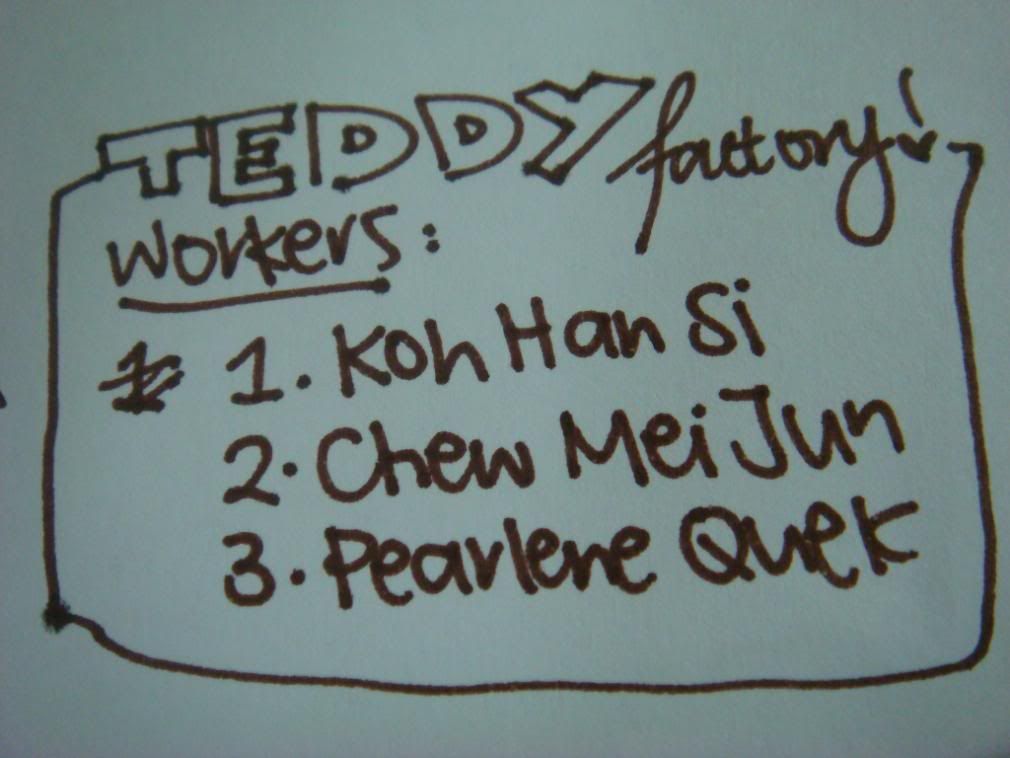 TEDDY factory!
Workers:
1. Koh Han Si
2. Chew Mei Jun
3. Pearlene Quek